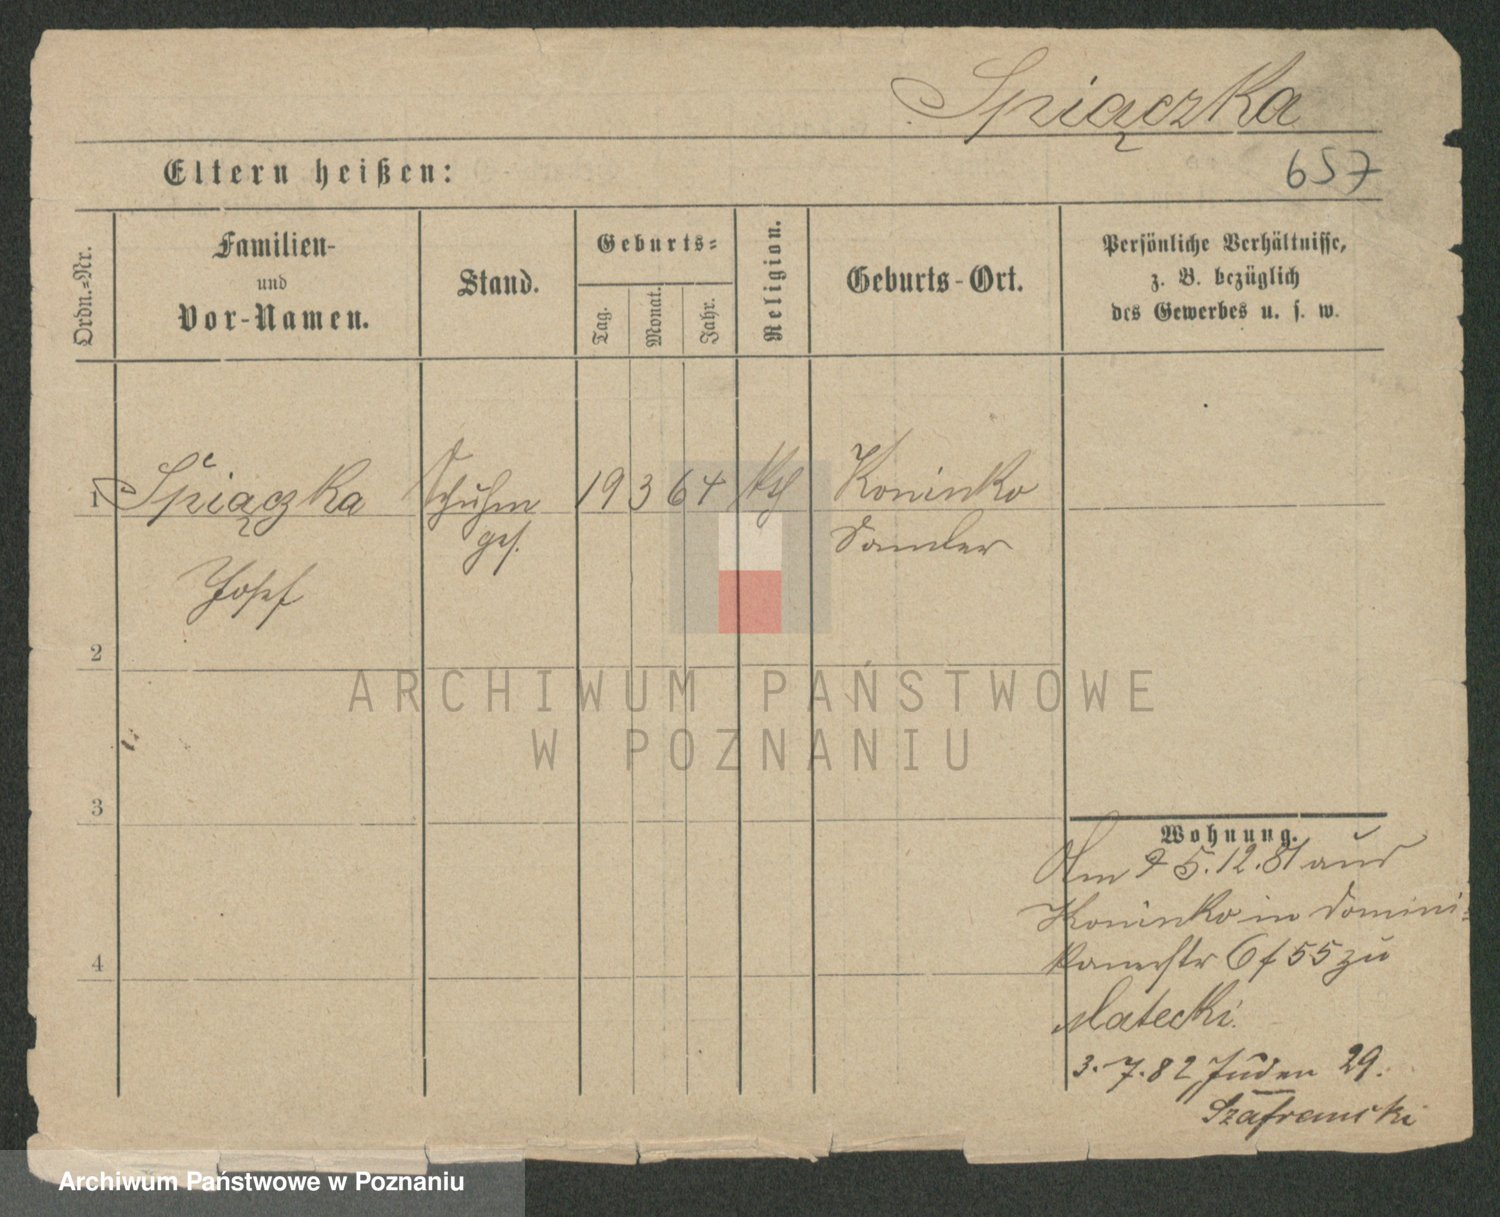 Spiączka
Eltern heißen:
657
Ordn.-Nr.
Familien-
und
Vor-Namen.
Stand.
Geburts-
Tag.
Monat.
Jahr.
Religion.
Geburts-Ort.
Persönliche Verhältnisse,
z. B. bezüglich
des Gewerbes u. s. w.
1 Spiączka Schuhm 19 3 64 kth Koninko
ges. 
Josef
2
3
4
Wohnung.
Am 5.12.81 aus
Koninko in Domini-
kanerstr 6 f 55 zu
Matecki.
3.7.82 Juden 29.
Szafranski
ARCHIWUM PAŃSTWOWE
W POZNANIU
Archiwum Państwowe w Poznaniu